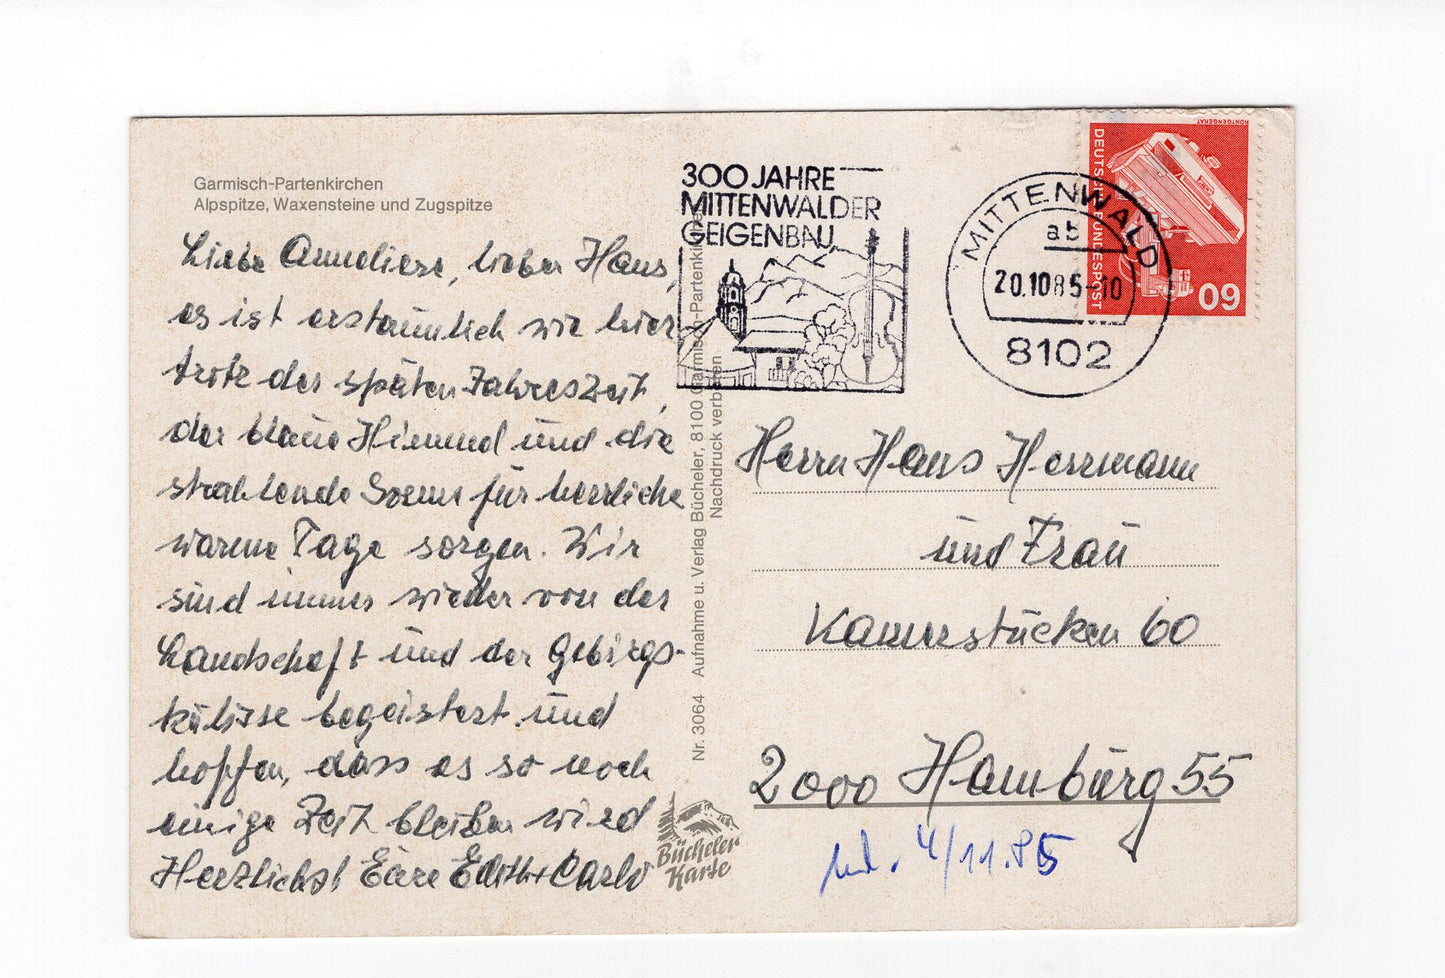 Garmisch-Partenkirchen
Alpspitze, Waxensteine und Zugspitze
Liebe Anneliese, lieber Hans,
es ist erstaunlich wie hier
trotz der späten Jahreszeit,
der blaue Himmel und die
strahlende Sonne für herrliche
warme Tage sorgen. Wir
sind immer wieder von der
Landschaft und der Gebirgs-
kulisse begeistert und
hoffen, dass es so noch
einige Zeit bleiben wird
Herzlichst Eure Edith + Carlo
Nr. 3064 Aufnahme u. Verlag Bücheler, 8100 Garmisch-Partenkirchen
Nachdruck verboten
Bücheler
Karte
300 JAHRE
MITTENWALDER
GEIGENBAU
MITTENWALD
ab
20.10.85-10
8102
RÖNTGENGERÄT
DEUTSCHE BUNDESPOST
60
Herrn Hans Herrmann
und Frau
Kamerstücken 60
2000 Hamburg 55
4/11.85